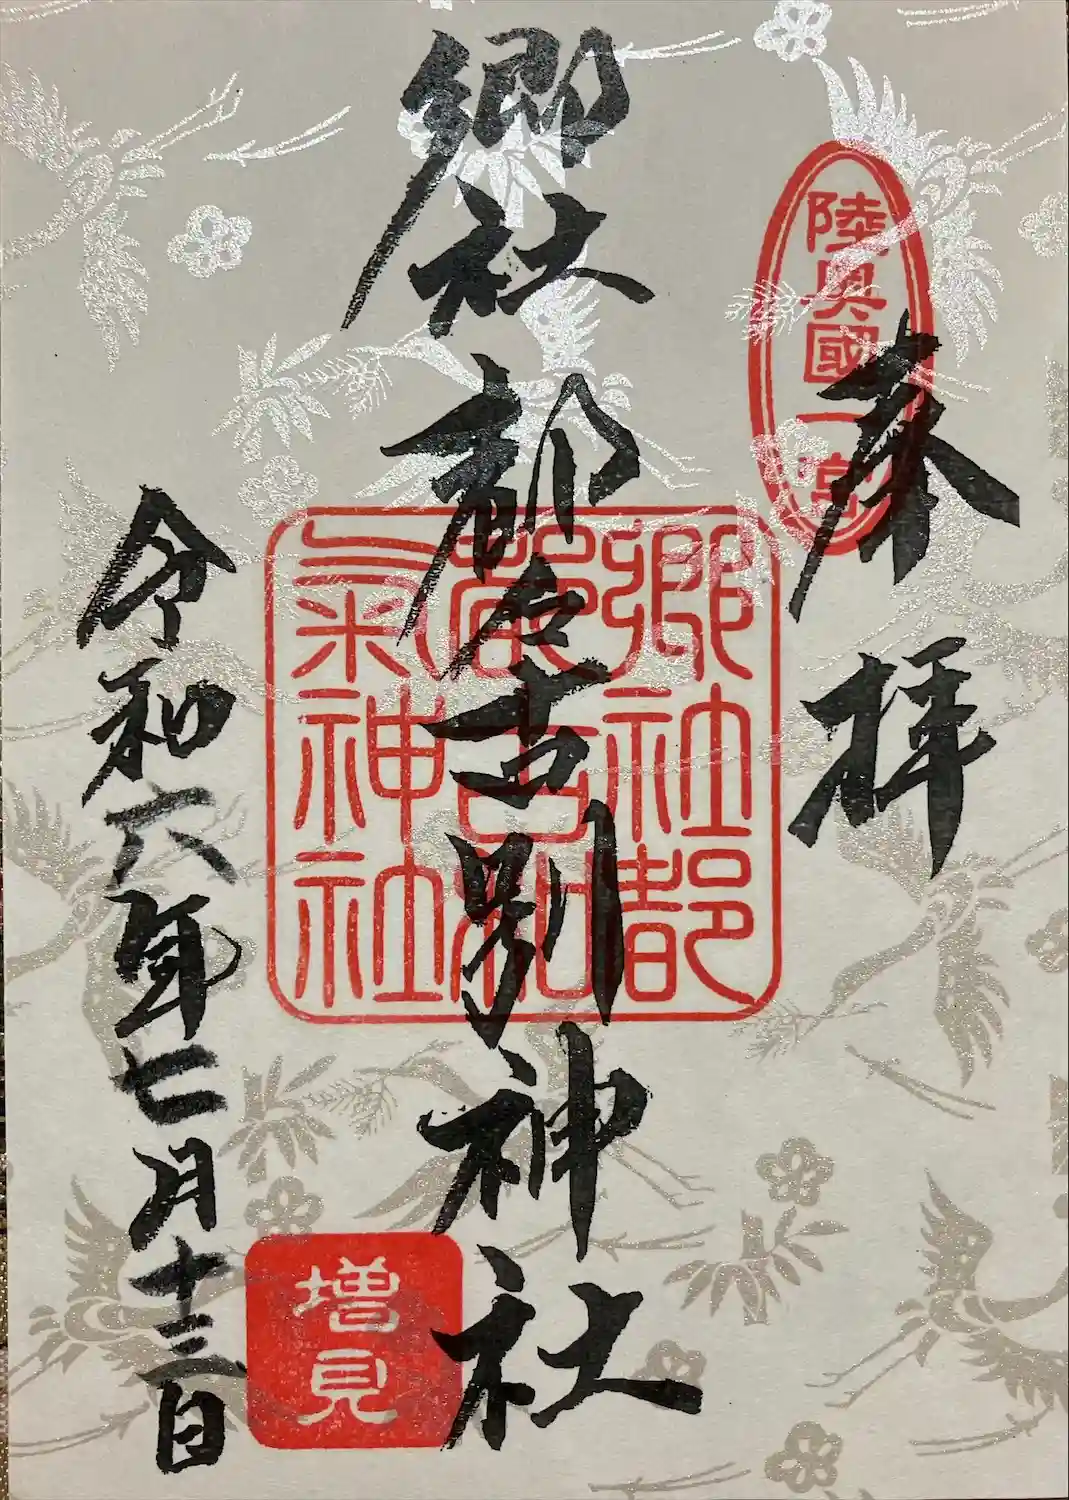 陸奥國一宮
奉拝
郷社都々古別神社
郷社都
古和
氣神社
令和六年七月十三日
増見